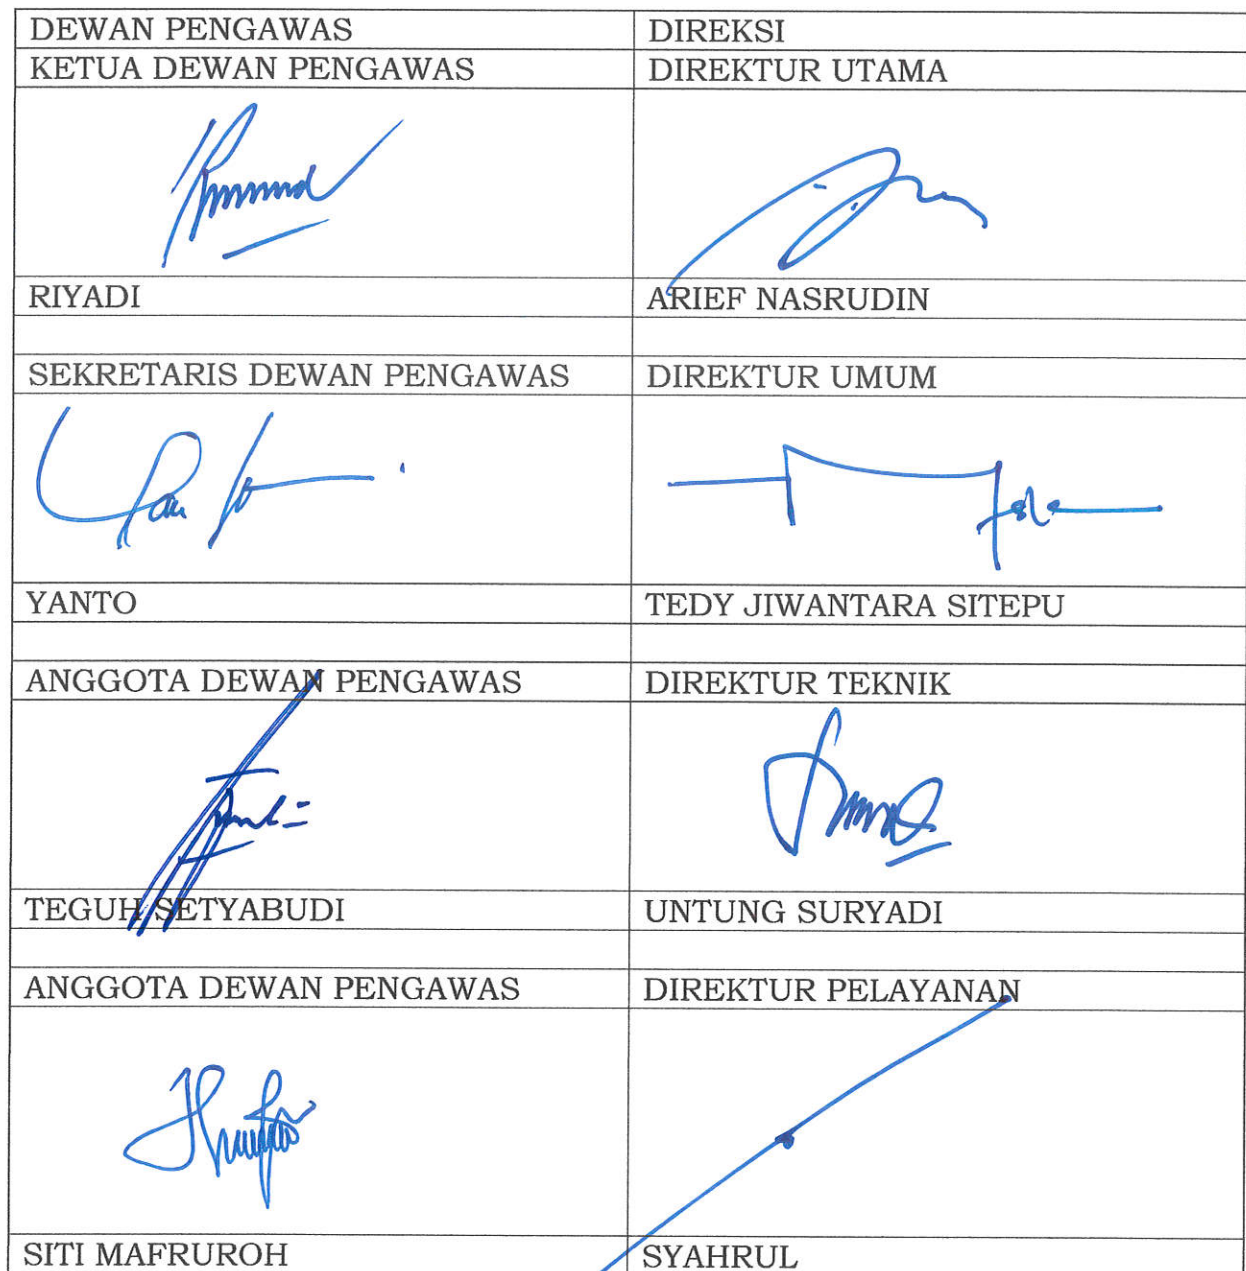 DEWAN PENGAWAS DIREKSI
KETUA DEWAN PENGAWAS DIREKTUR UTAMA
RIYADI ARIEF NASRUDIN
SEKRETARIS DEWAN PENGAWAS DIREKTUR UMUM
YANTO TEDY JIWANTARA SITEPU
ANGGOTA DEWAN PENGAWAS DIREKTUR TEKNIK
TEGUH SETYABUDI UNTUNG SURYADI
ANGGOTA DEWAN PENGAWAS DIREKTUR PELAYANAN
SITI MAFRUROH SYAHRUL